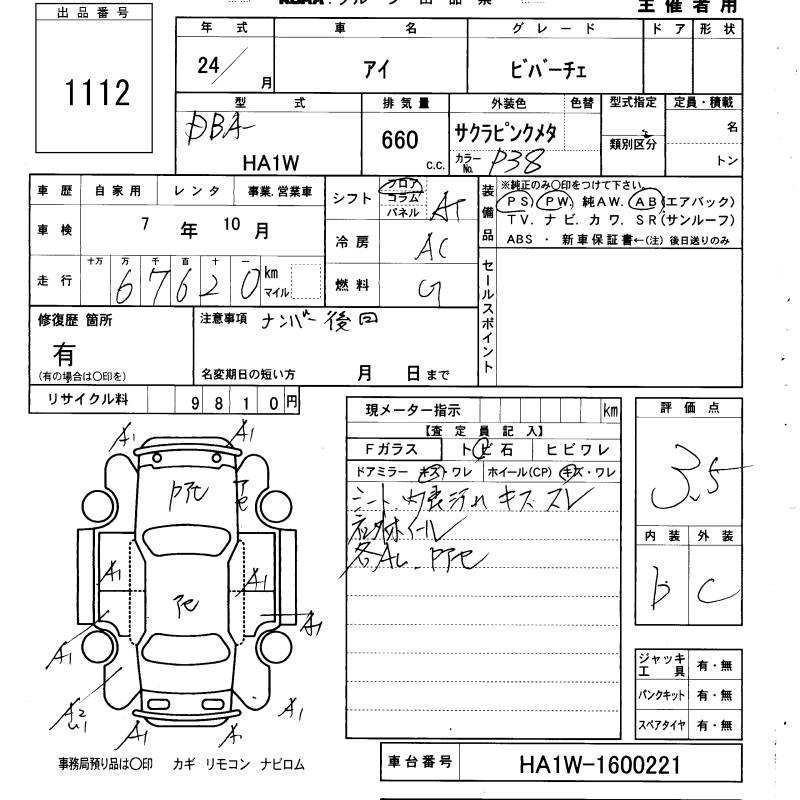 主催者用
出品番号
1112
年式 車名 グレード ドア 形状
24/ 月 アイ ビバーチェ
型式 排気量 外装色 色替 型式指定 定員・積載
DBA
HA1W
660 c.c.
サクラピンクメタ
カラーNo. P38
類別区分
名
トン
車歴 自家用 レンタ 事業.営業車
車検 7年 10月
走行 十万 万 千 百 十 一
67620 km マイル
シフト フロア コラム パネル AT
冷房 AC
燃料 G
装備品
※純正のみ〇印をつけて下さい。
PS. PW. 純AW. AB(エアバック)
TV. ナビ. カワ. SR(サンルーフ)
ABS ・ 新車保証書←(注) 後日送りのみ
セールスポイント
修復歴 箇所
有
(有の場合は〇印を)
注意事項 ナンバー後回
名変期日の短い方 月 日まで
リサイクル料 9810円
現メーター指示 km
【査定員記入】
Fガラス トビ石 ヒビワレ
ドアミラー キズ・ワレ ホイール(CP) キズ・ワレ
シート、内張汚れ キズ スレ
社外ホイール
評価点
3.5
内装 外装
b C
ジャッキ工具 有・無
パンクキット 有・無
スペアタイヤ 有・無
A1 A1
A1 A1
A1 A1
A1 A1
事務局預り品は〇印 カギ リモコン ナビロム
車台番号 HA1W-1600221